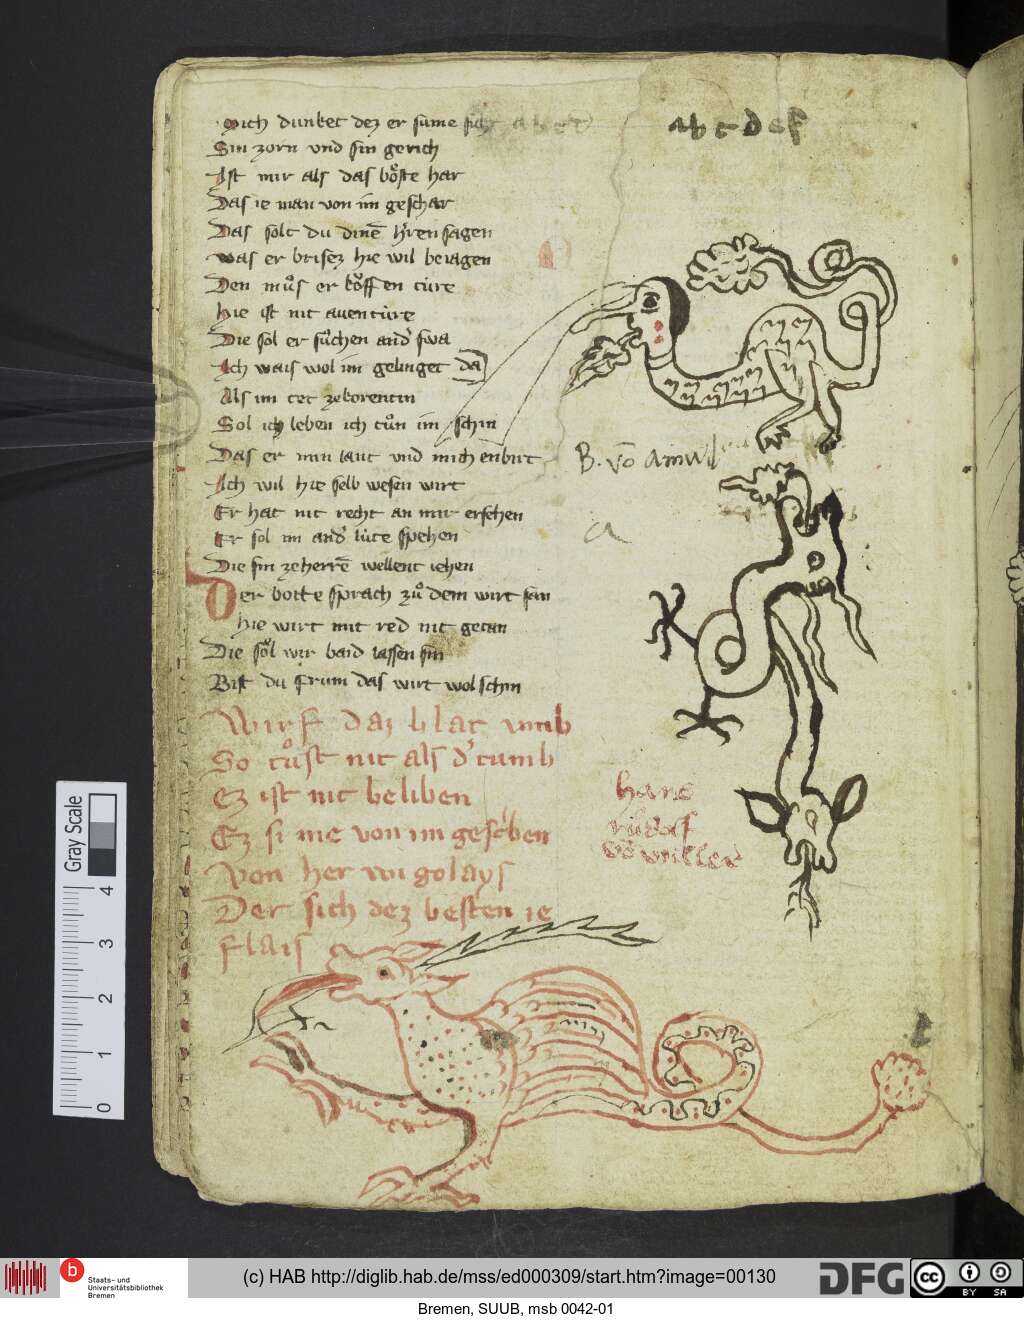 Mich dunket dez er sume sich
abcdef
Sin zorn vnd sin gerich
Ist mir als das boͤste har
Das ie man von im geschar
Das solt du dinē h'ren sagen
was er brisez hie wil beiagen
Den muͦs er koͧffen ture
hie ist nit auenture
Die sol er suͦchen and' swa
Ich wais wol im gelinget da
Als im tet zekorentin
Sol ich leben ich tuͦn im schin
Das er min lant vnd mich enbirt
B. vō
Ich wil hie selb wesen wirt
Er hat nit recht an mir ersehen
a
Er sol im and' lute spehen
Die sin zeherrē wellent iehen
Der botte sprach zuͦ dem wirt sin
hie wirt mit red nit getan
Die soͤl wir baid lassen sin
Bist du frum das wirt wol schin
Wirf daz blat vmb
So tuͦst nit als d' tumb
Ez ist nit beliben
hans
Ez si me von im gesc'ben
rudolf
Von her wigolays
Der sich dez besten ie
flais
Gray Scale
4
3
2
1
0
b
Staats- und
Universitätsbibliothek
Bremen
(c) HAB http://diglib.hab.de/mss/ed000309/start.htm?image=00130
DFG
cc
BY SA
Bremen, SUUB, msb 0042-01